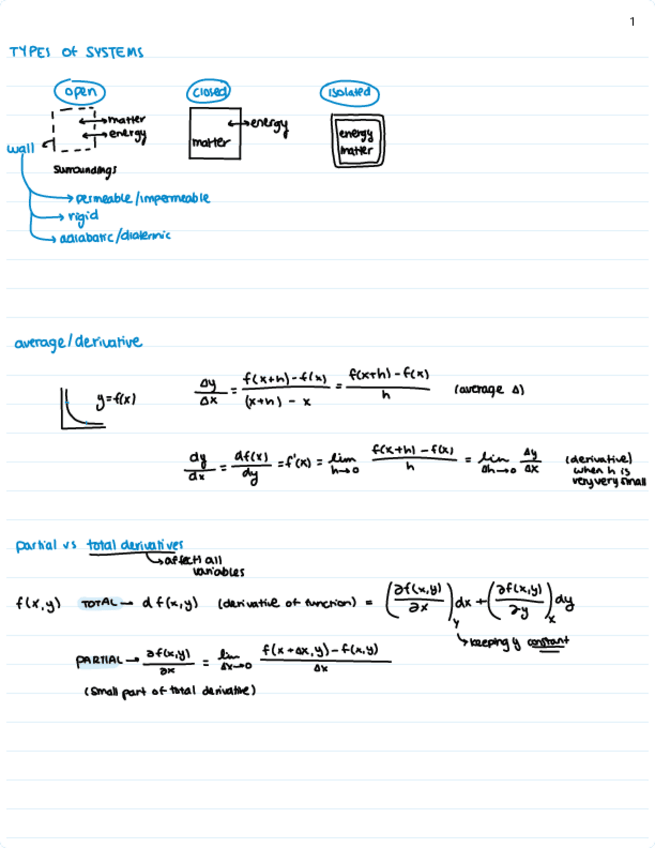 1
TYPES of SYSTEMS
open closed isolated
matter
energy
energy
matter
energy
matter
wall
surroundings
permeable/impermeable
rigid
adiabatic/diatermic
average/derivative
y=f(x)
Δy/Δx = (f(x+h)-f(x))/((x+h) - x) = (f(x+h)-f(x))/h (average Δ)
dy/dx = df(x)/dy = f'(x) = lim h→0 (f(x+h)-f(x))/h = lim Δh→0 Δy/Δx (derivative)
when h is
very very small
partial vs total derivatives
affect all
variables
f(x,y) TOTAL → df(x,y) (derivative of function) = (∂f(x,y)/∂x)y dx + (∂f(x,y)/∂y)x dy
keeping y constant
PARTIAL → ∂f(x,y)/∂x = lim Δx→0 (f(x+Δx,y)-f(x,y))/Δx
(small part of total derivative)